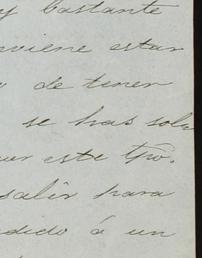 y bastante
nviene estar
de tener
se has
este tpo.
salir para
dido á un